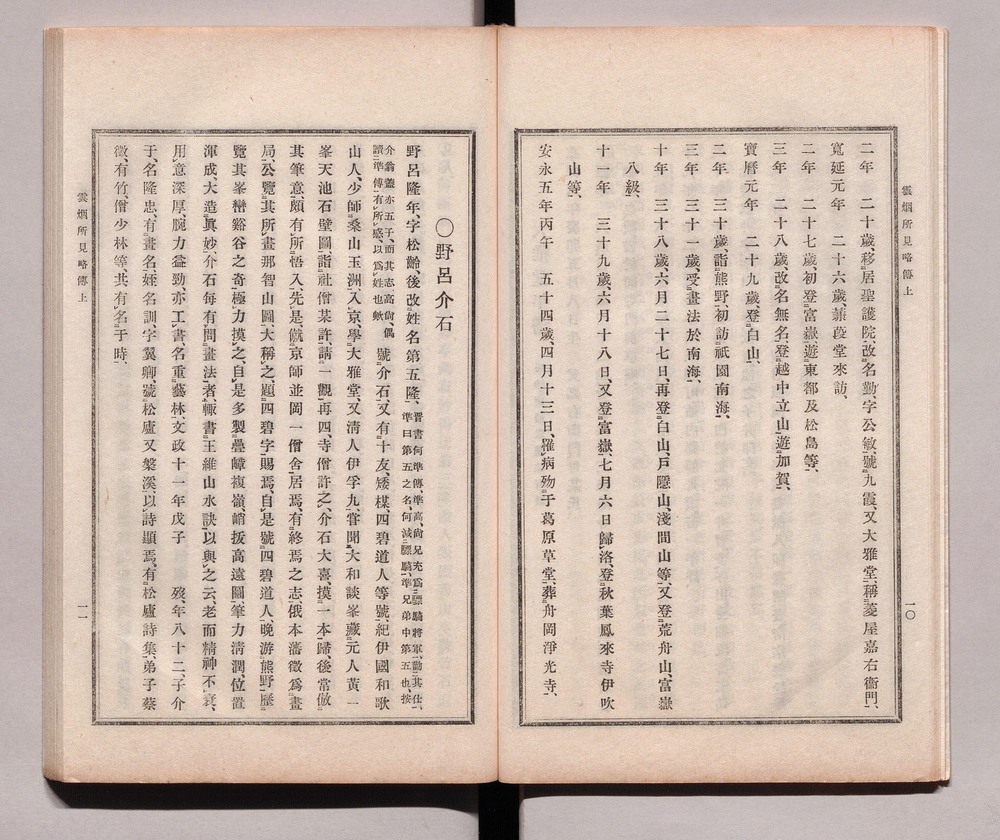 雲烟所見略傳上
一〇
二年　二十歲、移居聖護院、改名勤、字公敏、號九霞、又大雅堂、稱菱屋嘉右衞門、
寬延元年　二十六歲、蒹葭堂來訪、
二年　二十七歲、初登富嶽、遊東都及松島等、
三年　二十八歲、改名無名、登越中立山、遊加賀、
寶曆元年　二十九歲、登白山、
二年　三十歲、詣熊野、初訪祇園南海、
三年　三十一歲、受畫法於南海、
十年　三十八歲、六月二十七日、再登白山、戶隱山、淺間山等、又登荒舟山、富嶽
八級、
十一年　三十九歲、六月十八日、又登富嶽、七月六日歸洛、登秋葉鳳來寺伊吹
山等、
安永五年丙午　五十四歲、四月十三日、罹病歾于葛原草堂、葬舟岡淨光寺、
〇野呂介石
野呂隆年、字松齡、後改姓名第五隆、晋書何準傳、準高尙、兄充爲驃騎將軍、勸其仕、
準曰第五之名、何減驃騎、準兄弟中第五也、按
介翁蓋亦五子、而其志高尙、偶
讀準傳、有所感、以爲姓也歟、
號介石、又有十友、矮楳、四碧道人等號、紀伊國和歌
山人、少師桑山玉洲、入京、學大雅堂、又淸人伊孚九、嘗聞大和談峯藏元人黃一
峯天池石壁圖、詣社僧某許、請一觀、再四、寺僧許之、介石大喜、摸一本歸、後常倣
其筆意、頗有所悟入、先是、僦京師並岡一僧舍居焉、有終焉之志、俄本藩徵爲畫
局、公覽其所畫那智山圖、大稱之、題四碧字賜焉、自是號四碧道人、晚游熊野、歷
覽其峯巒谿谷之奇、極力摸之、自是多製疊嶂複嶺、峭拔高遠圖、筆力淸潤、位置
渾成、大造眞妙、介石每有問畫法者、輙書王維山水訣、以與之云、老而精神不衰、
用意深厚、腕力益勁、亦工書、名重藝林、文政十一年戊子　歿、年八十二、子介
于、名隆忠、有畫名、姪名訓、字翼卿、號松廬又槃溪、以詩顯焉、有松廬詩集、弟子蔡
徵、有竹、僧少林等、其有名于時、
雲烟所見略傳上
一一